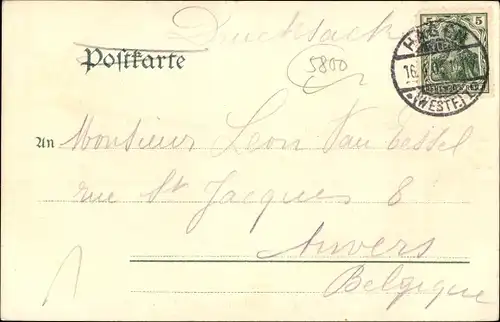 Drucksache
Postkarte
5800
5 5
HAGEN
16.
(WESTF.)
An Monsieur Leon Van Eessel
rue St Jacques 8
Anvers
Belgique